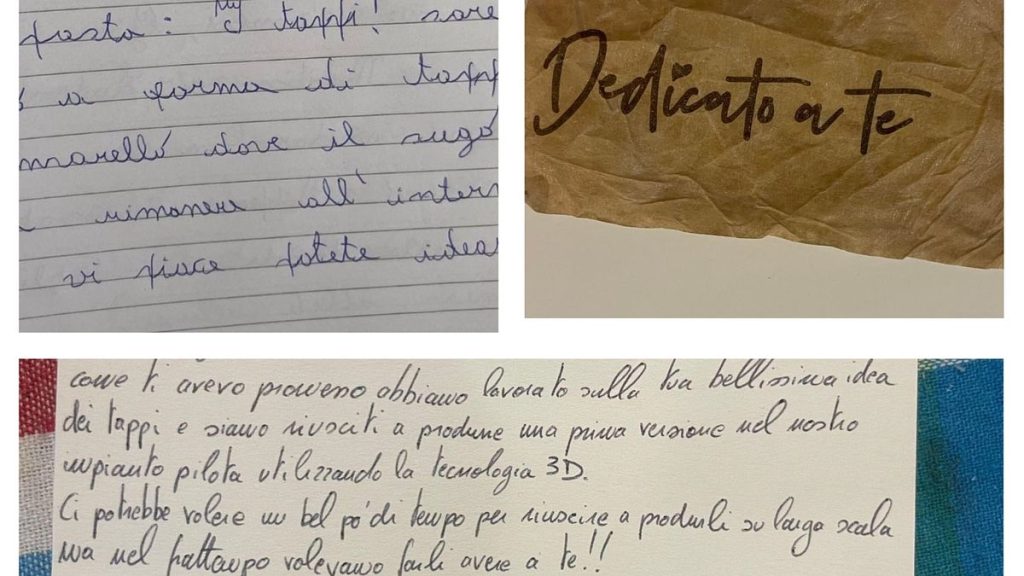 pasta: "I tappi! sare
a forma di tapp
marello dove il sugo
rimanere all'intern
vi piace potete idea
Dedicato a te
come ti avevo promesso abbiamo lavorato sulla tua bellissima idea
dei tappi e siamo riusciti a produrne una prima versione nel nostro
impianto pilota utilizzando la tecnologia 3D.
Ci potrebbe volere un bel po' di tempo per riuscire a produrli su larga scala
ma nel frattempo volevamo farli avere a te!!